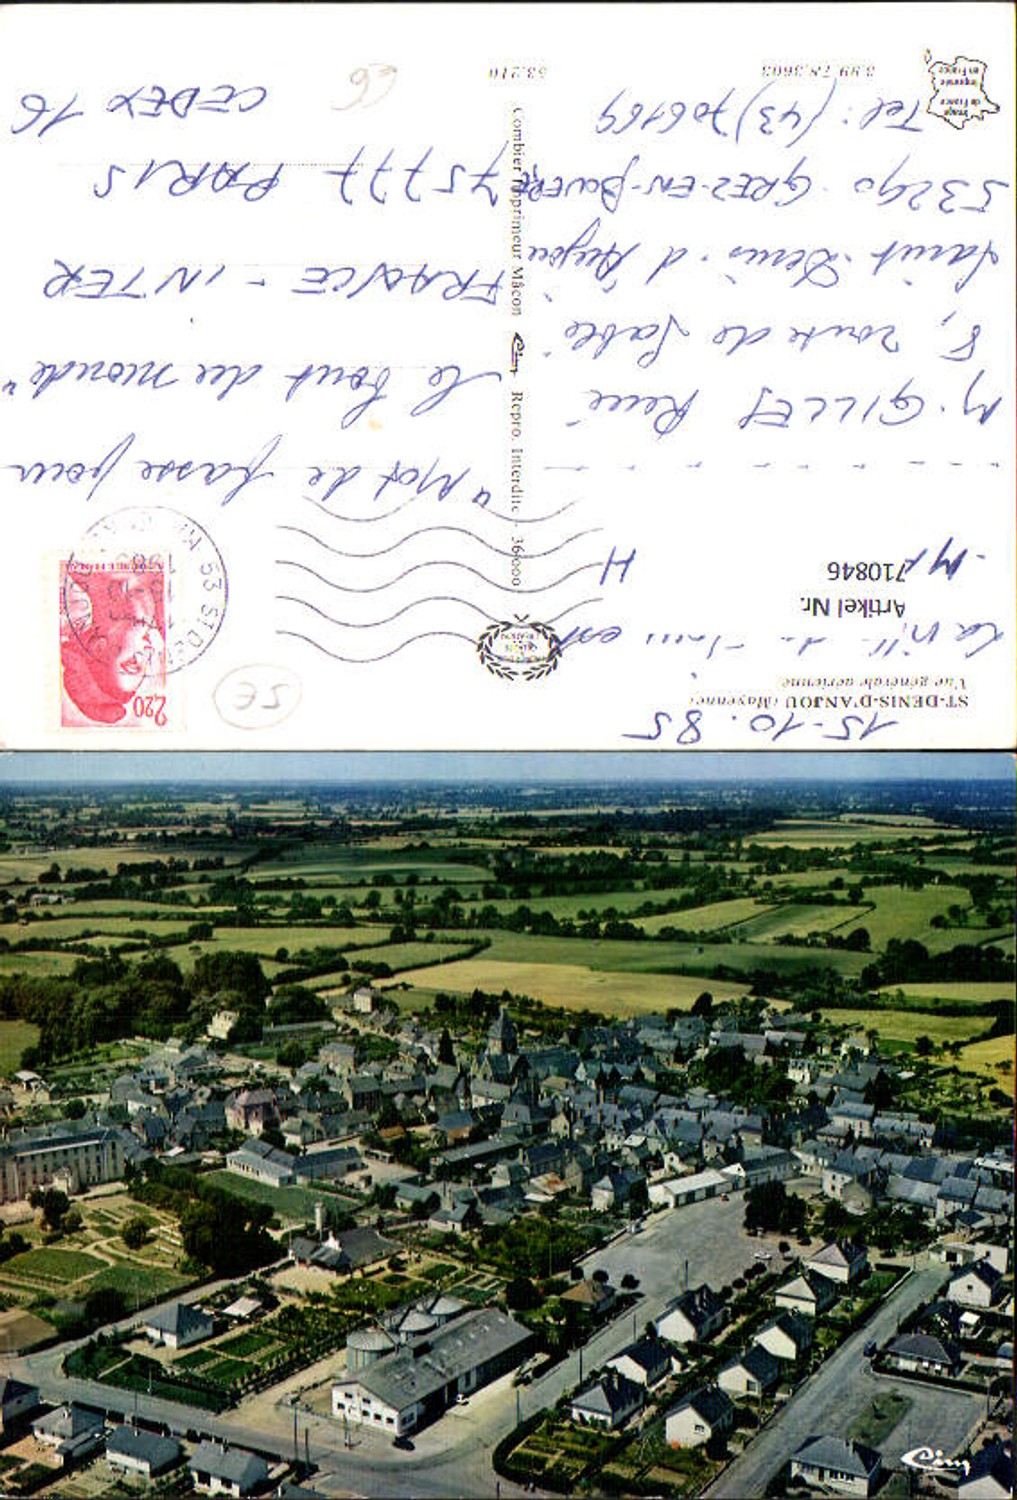 15.10.85
ST-DENIS-D'ANJOU (Mayenne)
Vue générale aérienne
La ville du Jeu est
Artikel Nr.
710846
H
M. GILLET René
8, route de Sablé
Saint-Denis-d'Anjou
53290 GREZ-EN-BOUERE
Tel: (43) 706169
3.99.78.3603
53.210
Image
de France
imprimée
en France
Combier Imprimeur Mâcon Cim Repro. Interdite - 36000
5€
2,20
53 ST DENIS D'ANJOU
"Mot de passe pour
le bout du monde"
FRANCE-INTER
75777 PARIS
CEDEX 16
€6
Cim